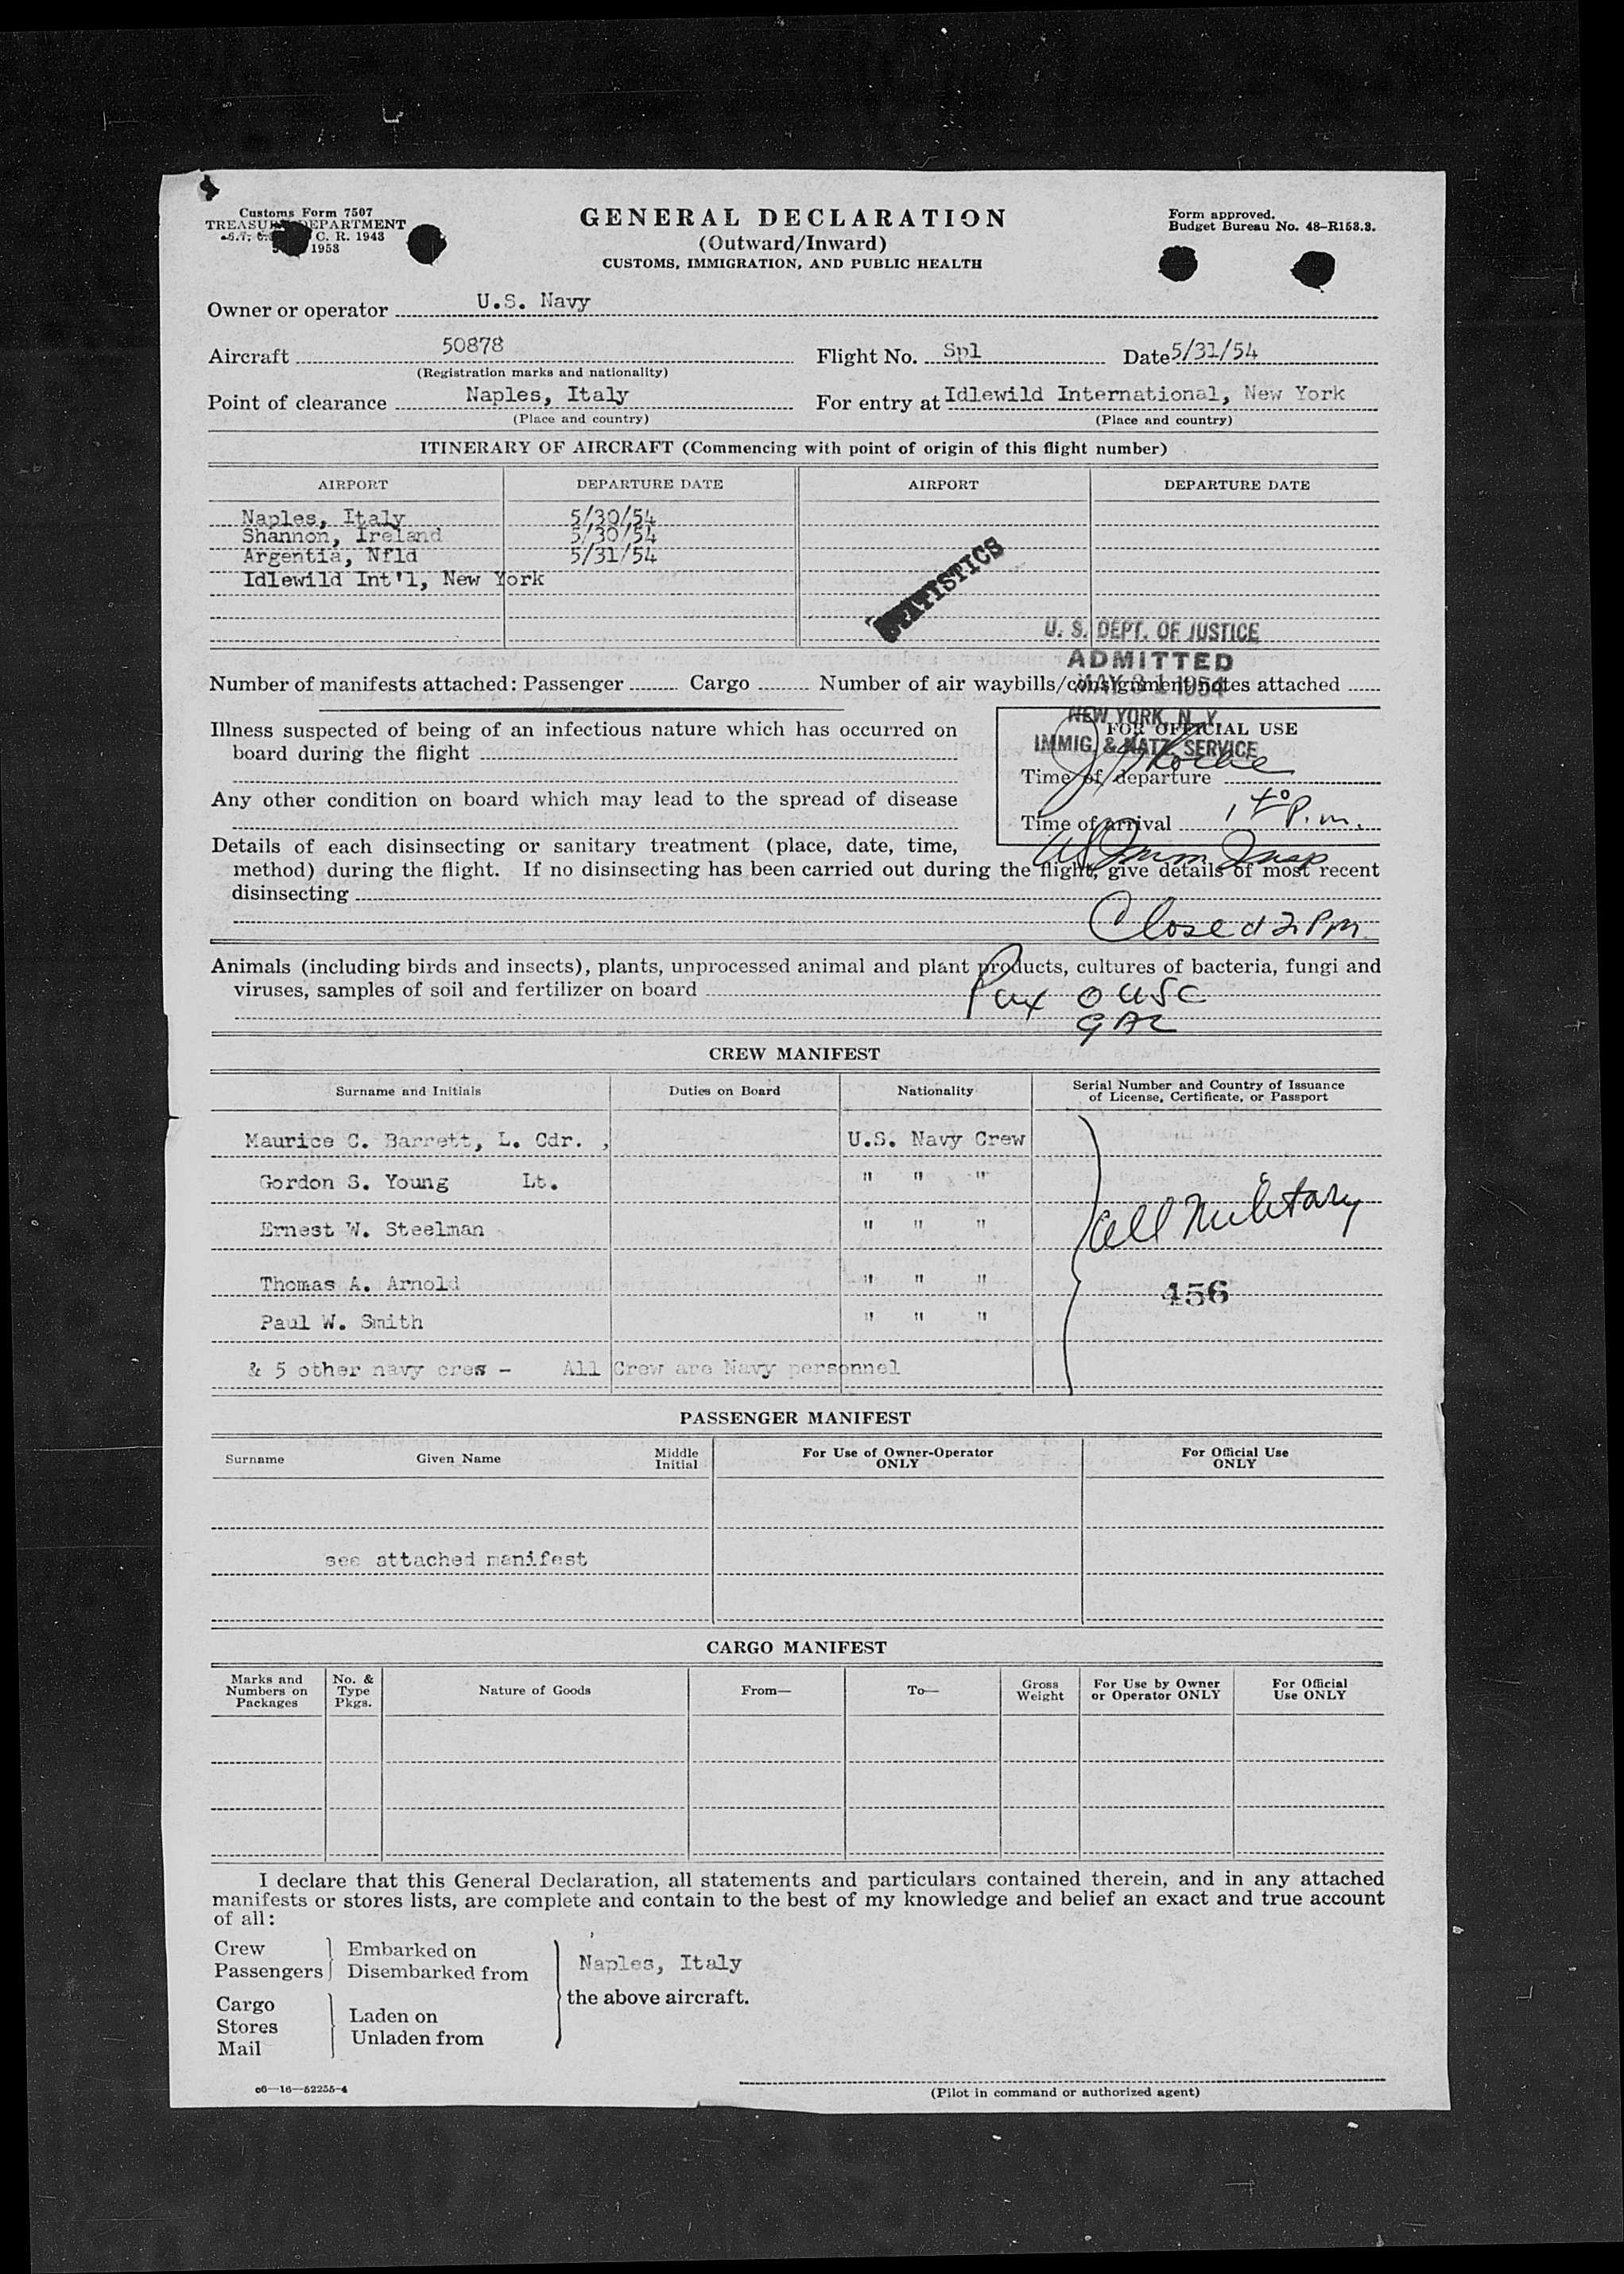 Customs Form 7507
TREASURY DEPARTMENT
C. R. 1943
1953
GENERAL DECLARATION
(Outward/Inward)
CUSTOMS, IMMIGRATION, AND PUBLIC HEALTH
Form approved.
Budget Bureau No. 48-R153.3.
Owner or operator U.S. Navy
Aircraft 50878 Flight No. Spl Date 5/31/54
(Registration marks and nationality)
Point of clearance Naples, Italy For entry at Idlewild International, New York
(Place and country) (Place and country)
ITINERARY OF AIRCRAFT (Commencing with point of origin of this flight number)
AIRPORT DEPARTURE DATE AIRPORT DEPARTURE DATE
Naples, Italy 5/30/54
Shannon, Ireland 5/30/54
Argentia, Nfld 5/31/54
Idlewild Int'l, New York
STATISTICS
U. S. DEPT. OF JUSTICE
ADMITTED
MAY 31 1954
NEW YORK, N. Y.
IMMIG. & NATZ. SERVICE
Number of manifests attached: Passenger Cargo Number of air waybills/consignment notes attached
Illness suspected of being of an infectious nature which has occurred on
board during the flight
Any other condition on board which may lead to the spread of disease
FOR OFFICIAL USE
Time of departure
Time of arrival 1 40 P.m.
US Imm Insp
Details of each disinsecting or sanitary treatment (place, date, time,
method) during the flight. If no disinsecting has been carried out during the flight, give details of most recent
disinsecting
Closed 2 PM.
Animals (including birds and insects), plants, unprocessed animal and plant products, cultures of bacteria, fungi and
viruses, samples of soil and fertilizer on board
Pax 0 USC
9 AL
CREW MANIFEST
Surname and Initials Duties on Board Nationality Serial Number and Country of Issuance
of License, Certificate, or Passport
Maurice C. Barrett, L. Cdr. , U.S. Navy Crew
Gordon S. Young Lt. " " "
Ernest W. Steelman " " "
All Military
Thomas A. Arnold " " "
456
Paul W. Smith " " "
& 5 other navy crew - All Crew are Navy personnel
PASSENGER MANIFEST
Surname Given Name Middle Initial For Use of Owner-Operator ONLY For Official Use ONLY
see attached manifest
CARGO MANIFEST
Marks and Numbers on Packages No. & Type Pkgs. Nature of Goods From— To— Gross Weight For Use by Owner or Operator ONLY For Official Use ONLY
I declare that this General Declaration, all statements and particulars contained therein, and in any attached
manifests or stores lists, are complete and contain to the best of my knowledge and belief an exact and true account
of all:
Crew Embarked on
Passengers Disembarked from
Naples, Italy
the above aircraft.
Cargo
Stores
Mail
Laden on
Unladen from
c6—16—52255-4
(Pilot in command or authorized agent)